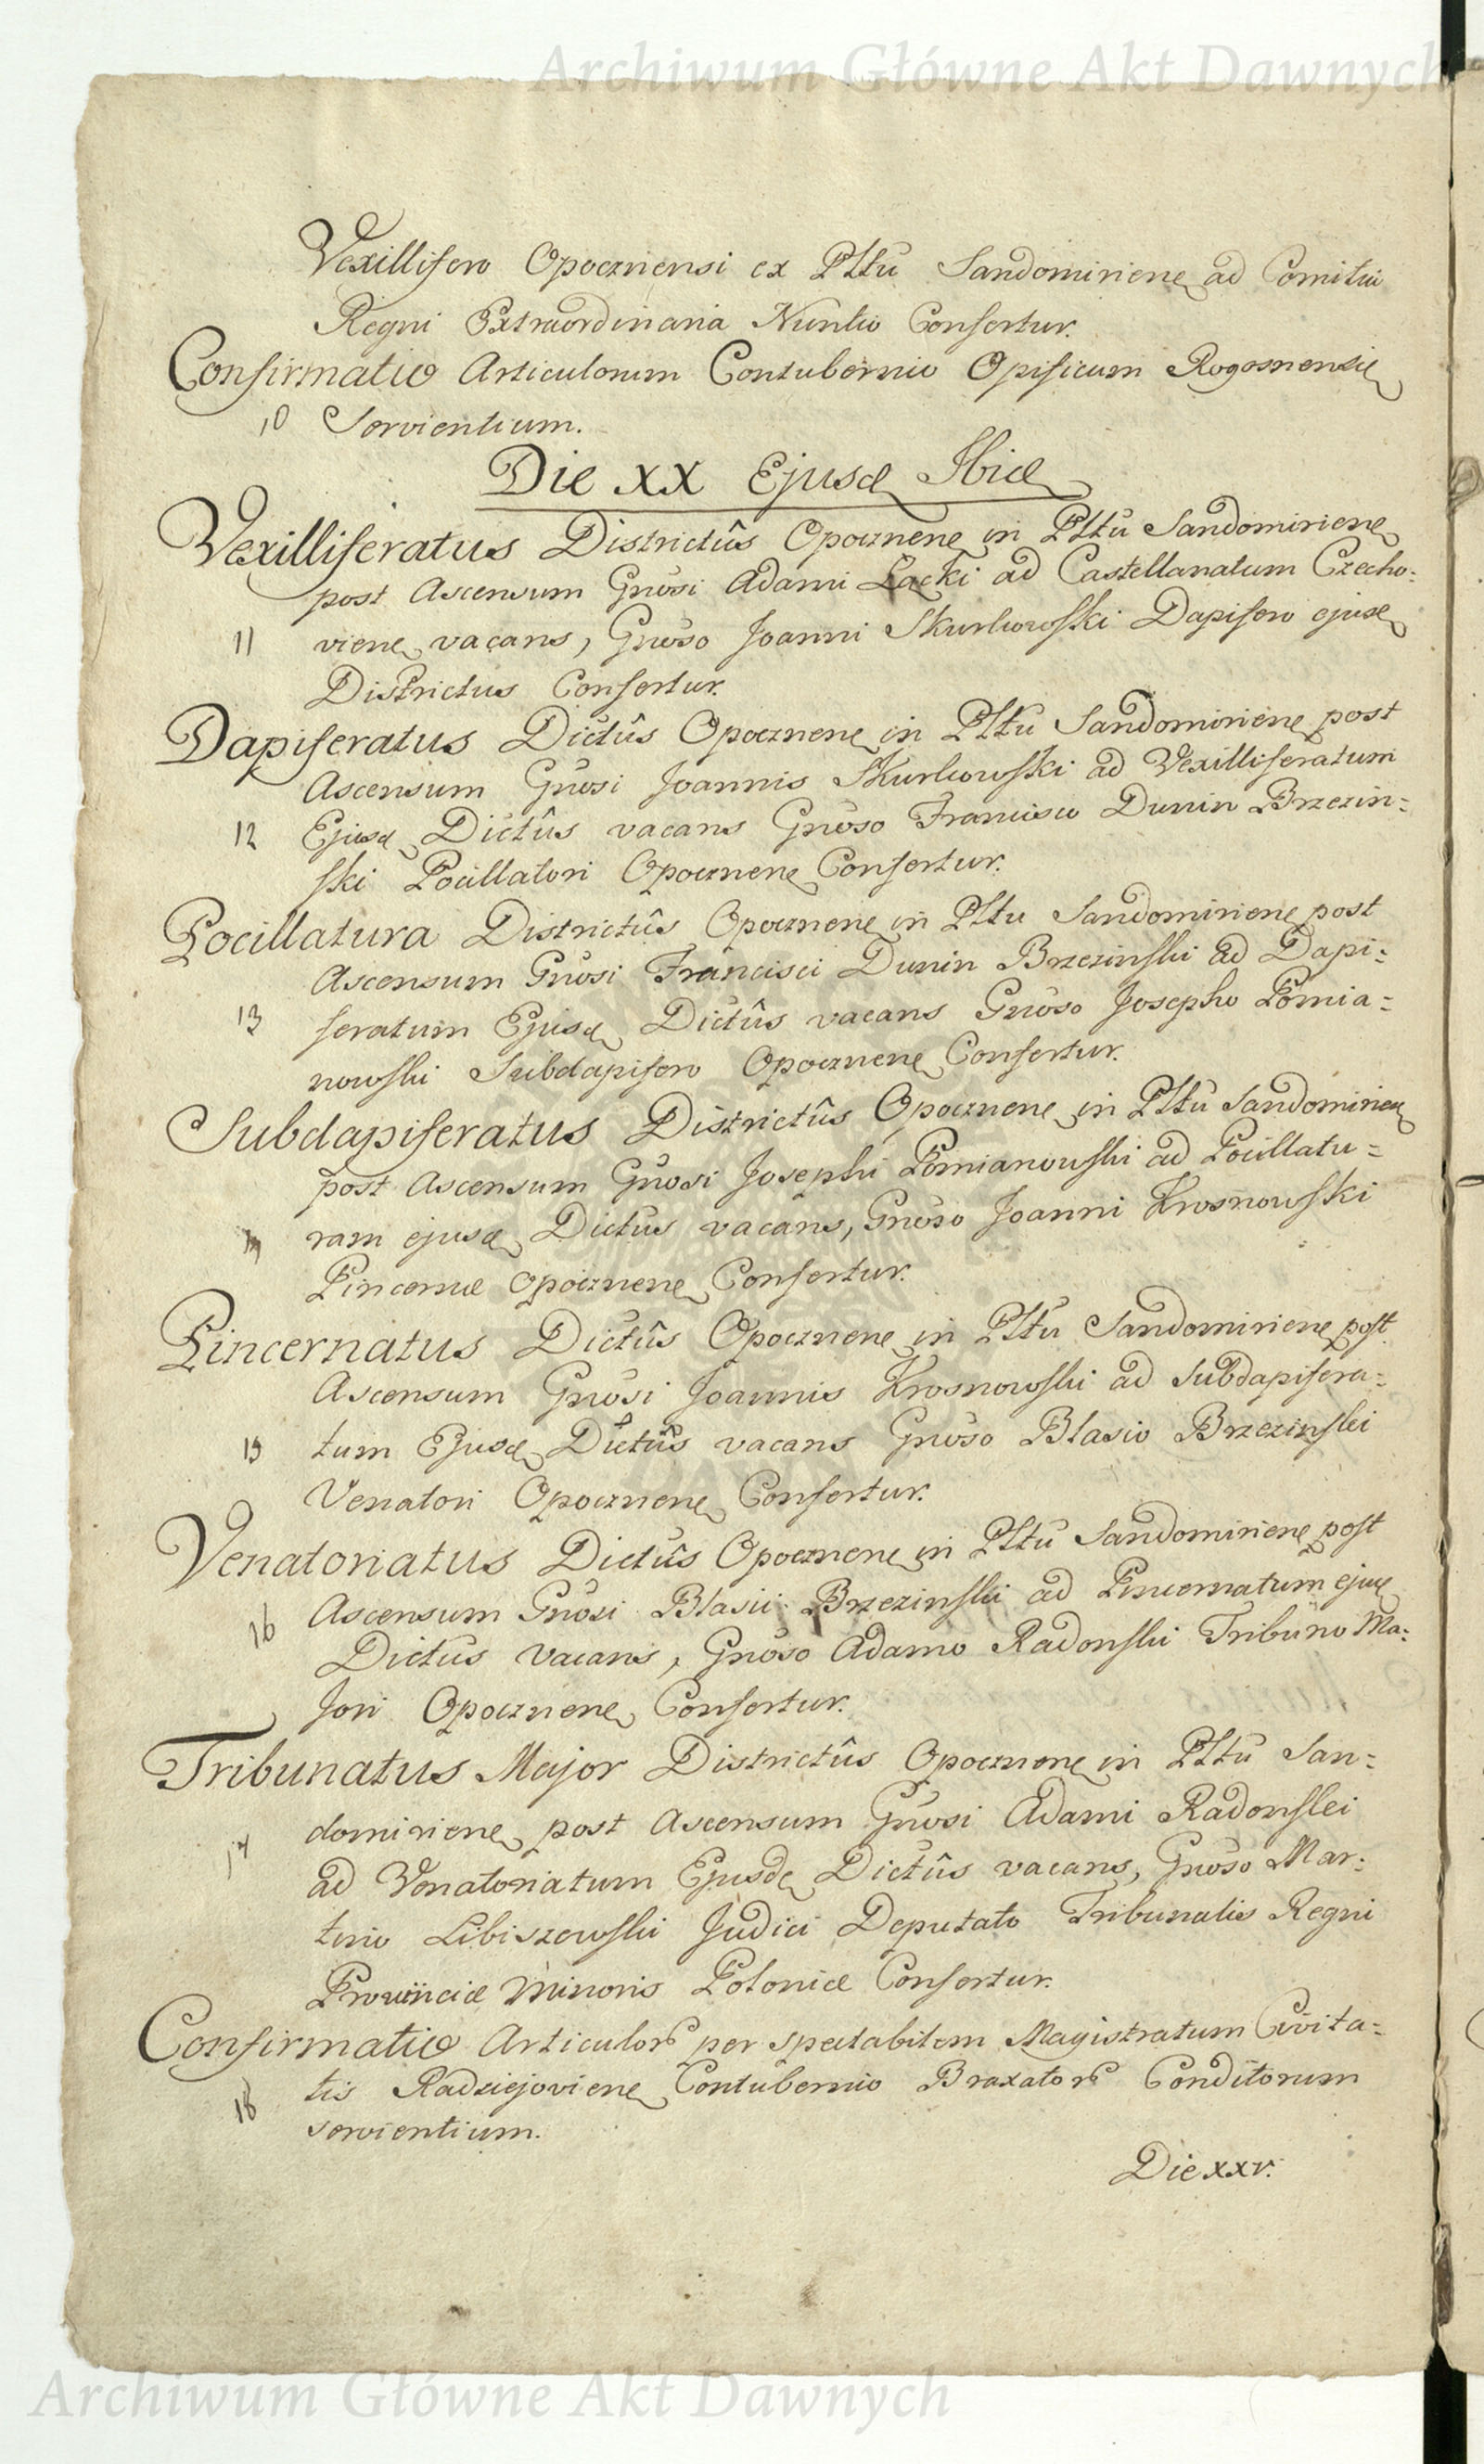 Archiwum Główne Akt Dawnych
Vexillifero Opoczniensi ex Plltu Sandomiriene ad Comitia
Regni Extraordinaria Nuntio Confertur.
Confirmatio Articulorum Contubernio Opificum Rogosnensie
10 Servientium.
Die XX Ejusd Ibid
Vexilliferatus Districtûs Opocznene in Plltu Sandomiriene
post Ascensum Gnosi Adami Łącki ad Castellanatum Czecho=
11 viene vacans, Gnoso Joanni Skurkowski Dapifero ejusd
Districtus Confertur.
Dapiferatus Dictûs Opocznene in Plltu Sandomiriene post
Ascensum Gnosi Joannis Skurkowski ad Vexilliferatum
12 Ejusd Dictûs vacans Gnoso Francisco Dunin Brzezin=
ski Pocillatori Opocznene Confertur.
Pocillatura Districtûs Opocznene in Plltu Sandomiriene post
Ascensum Gnosi Francisci Dunin Brzezinski ad Dapi=
13 feratum Ejusd Dictûs vacans Gnoso Josepho Pomia=
nowski Subdapifero Opocznene Confertur.
Subdapiferatus Districtûs Opocznene in Plltu Sandomirien
post Ascensum Gnosi Josephi Pomianowski ad Pocillatu=
ram ejusd Dictus vacans, Gnoso Joanni Krosnowski
Pincernæ Opocznene Confertur.
Pincernatus Dictûs Opocznene in Plltu Sandomiriene post
Ascensum Gnosi Joannis Krosnowski ad Subdapifera=
15 tum Ejusd Dictûs vacans Gnoso Blasio Brzezinski
Venatori Opocznene Confertur.
Venatoriatus Dictûs Opocznene in Plltu Sandomiriene post
16 Ascensum Gnosi Blasii Brzezinski ad Pincernatum ejusd
Dictus vacans, Gnoso Adamo Radonski Tribuno Ma=
jori Opocznene Confertur.
Tribunatus Major Districtûs Opocznene in Plltu San=
domiriene post Ascensum Gnosi Adami Radonski
17 ad Venatoriatum Ejusde Dictûs vacans, Gnoso Mar=
tino Libiszewski Judici Deputato Tribunalis Regni
Provinciæ Minoris Poloniæ Confertur.
Confirmatio Articulor per spectabilem Magistratum Civita=
18 tis Radziejoviene Contubernio Braxator Conditorum
servientium.
Die xxv.
Archiwum Główne Akt Dawnych